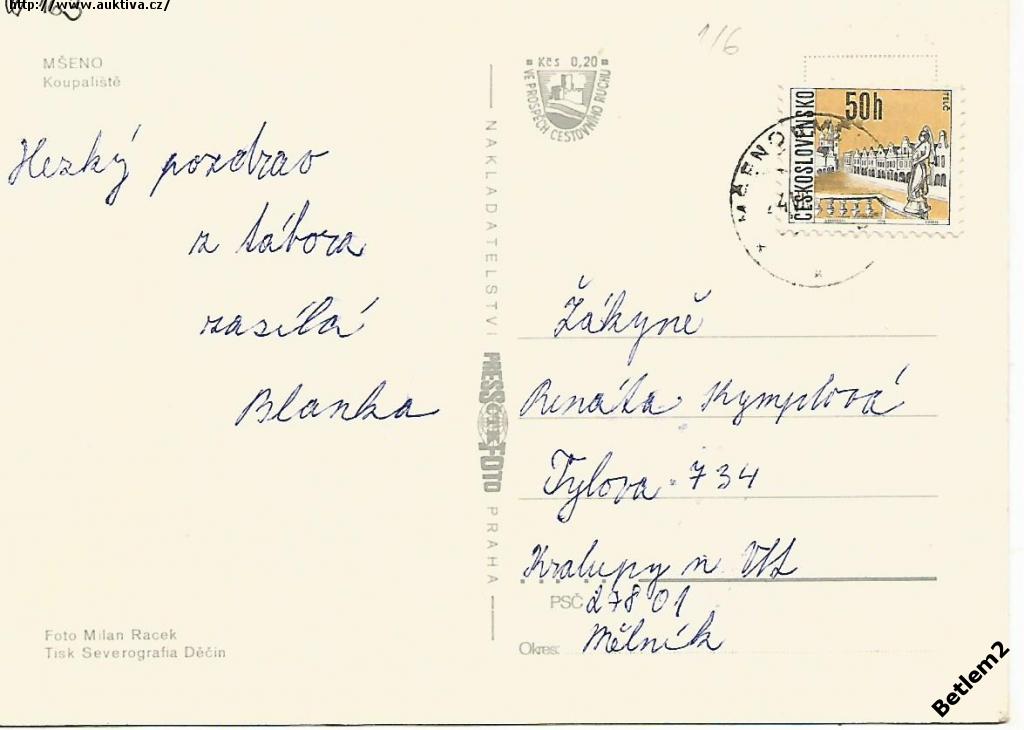 http://www.auktiva.cz/
MŠENO
Koupaliště
Hezký pozdrav
z tábora
zasílá
Blanka
Foto Milan Racek
Tisk Severografia Děčín
NAKLADATELSTVÍ
PRESSFOTO
PRAHA
Kčs 0,20
VE PROSPĚCH CESTOVNÍHO RUCHU
1/6
ČESKOSLOVENSKO
50h
TELČ
MŠENO
Žákyně
Renáta Kymplová
Tylova 734
Kralupy n Vlt
PSČ 27801
Okres: Mělník
Betlem2